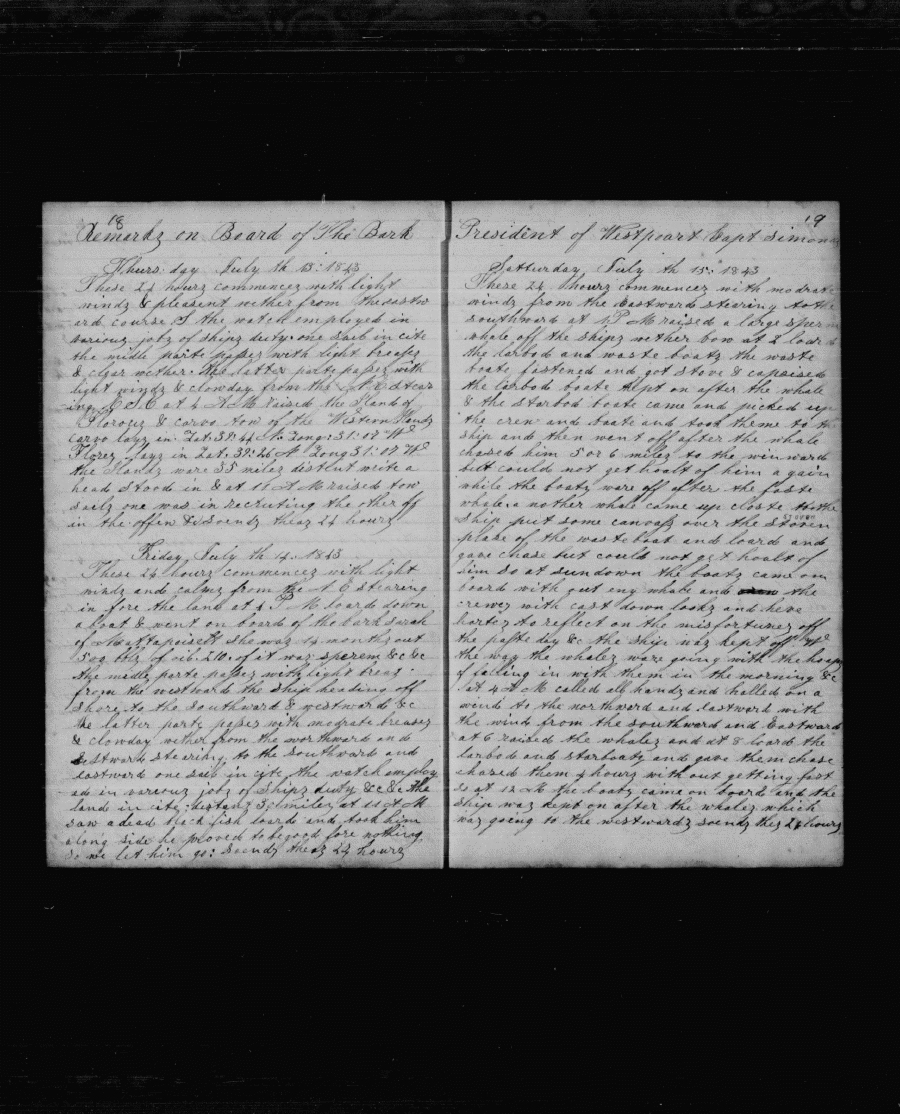 18
Remarkz on Board of The Bark
Thursday July th 13: 1843
These 24 hours commencez with light
windz & pleasent wether from the eastw
ard course S the watch employed in
variouz jobz of shipz duty: one sail in cite
the midle parte passez with light breazes
& clear wether. the latter parte passez with
light windz & clowday from the N E stear
ing E S E at 4 A M raised the Iland of
Florouz & corvo tow of the Western Ilandz
Corvo layz in Lat: 39:44 N: Long: 31:07 W
Florez layz in Lat: 39:26 N Long 31:09 W
the Ilandz ware 35 milez distent write a
head stood in & at 11 A M raised tow
sailz one was in recruting the other off
in the offen & so endz theaz 24 hourz
Friday July th 14: 1843
These 24 hourz commencez with light
windz and calmz from the N E stearing
in fore the land at 4 P M loard down
a boat & went on board of the bark Sarah
of Mattapoisett she waz 14 months out
500 bblz of oil: 210 of it waz sperem &c &c
the midle parte passez with light breaz
from the westward the ship heading off
shore to the southward & westward &c
the latter parte passez with modrate breazez
& clowday wether from the northward and
eastward stearing to the southward and
eastward one sail in cite the watch employ
ed in variouz jobz of shipz duty &c &c the
land in cite: distanz 30 milez at 11 A M
saw a dead black fish loard and took him
along side he proved to be good fore nothing
so we let him go: so endz theaz 24 hourz
19
President of Westpoart Capt Simons
Satturday July th 15: 1843
These 24 hourz commencez with modrate
windz from the Eastward stearing to the
southward at 1 P M raised a large sperm
whale off the shipz wether bow at 2 loard
the larbod and waste boatz the waste
boate fastened and got stove & capsised
the larbod boate kept on after the whale
& the starbod boate came and picked up
the crew and boate and took theme to the
ship and then went off after the whale
chased him 5 or 6 milez to the winward
but could not get hoalt of him a gain
while the boatz ware off after the faste
whale: a nother whale came up close to the
ship put some canvass over the stoven
stoven
plase of the waste boat and loard and
gave chase but could not get hoalt of
him so at sundown the boatz came on
board with out eny whale and the
crewz with cast down lookz and heve
hartez to reflect on the misfortunez off
the paste day &c the ship waz kept off W
the way the whalez were going with the hoapz
of falling in with them in the morning &c
at 4 A M called all handz and halled on a
wind to the northward and eastward with
the wind from the southward and Eastward
at 6 raised the whalez and at 8 loard the
larbod and starboatz and gave them chase
chased them 4 hourz with out getting fast
so at 12 M the boatz came on board and the
ship waz kept on after the whalez which
waz going to the westwardz so endz thes 24 hourz